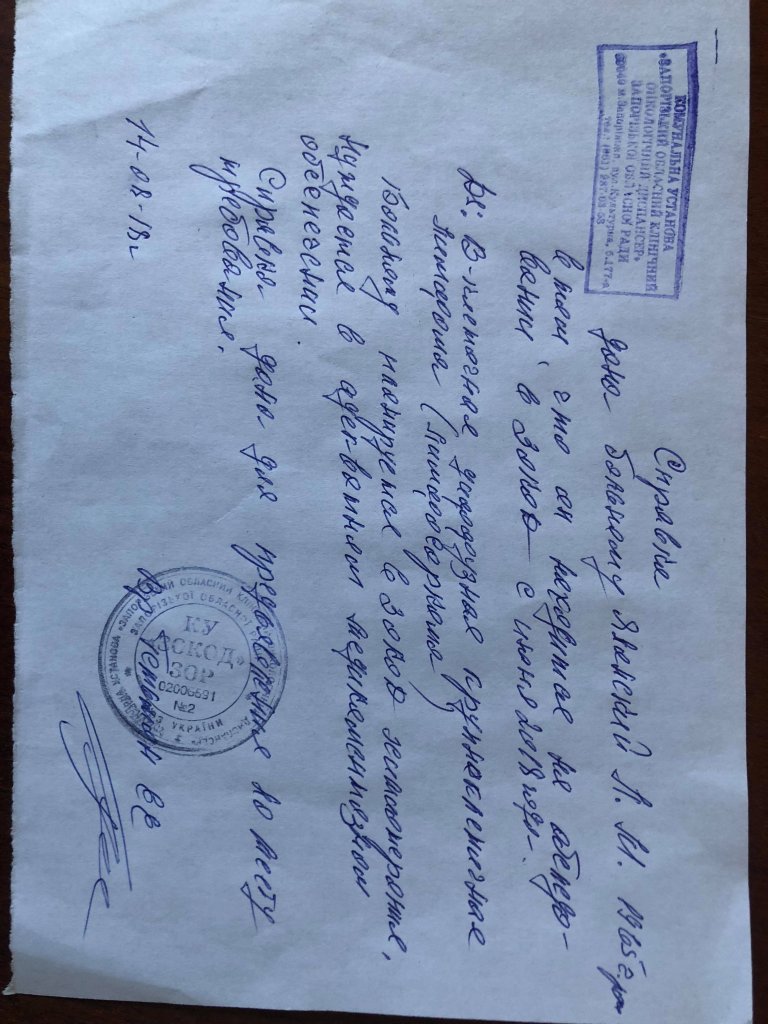 КОМУНАЛЬНА УСТАНОВА
«ЗАПОРІЗЬКИЙ ОБЛАСНИЙ КЛІНІЧНИЙ
ОНКОЛОГІЧНИЙ ДИСПАНСЕР»
ЗАПОРІЗЬКОЇ ОБЛАСНОЇ РАДИ
69040 м.Запоріжжя, вул.Культурна, б.177-а
Справка
дана больному Яланский Л. М. 1965 г.р
в том что он находится на обследо-
вании в ЗОКОД с июня 2018 года.
Ds: В-клеточная диффузная крупноклеточная
лимфома (лимфосаркома)
Больному планируется в ЗОКОД химиотерапия,
нуждается в адекватном медикаментозном
обеспечении.
Справка дана для предъявления по месту
требования.
14-08-18г
КУ
«ЗОКОД»
ЗОР
02006591
№2
УКРАЇНИ